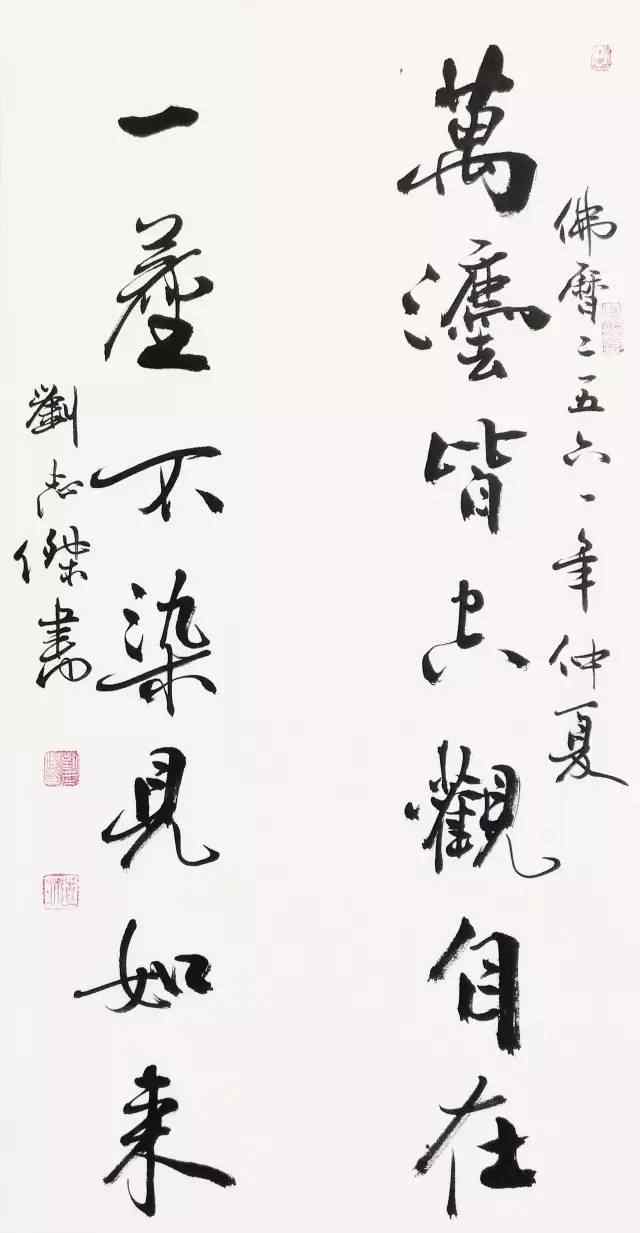 佛曆二五六一年仲夏
萬灋皆空觀自在
一塵不染見如來
劉志傑書